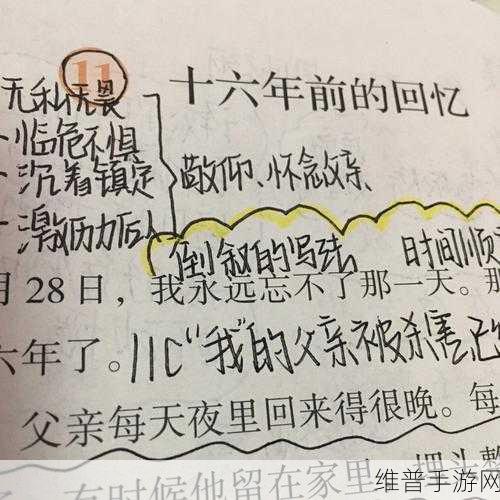 11 十六年前的回忆
无私无畏
临危不惧
沉着镇定
激励后人
敬仰、怀念父亲
倒叙的写法 时间顺
月28日，我永远忘不了那一天。那
六年了。11C"我"的父亲被杀害已
父亲每天夜里回来得很晚。每
有时候他留在家里
维普手游网